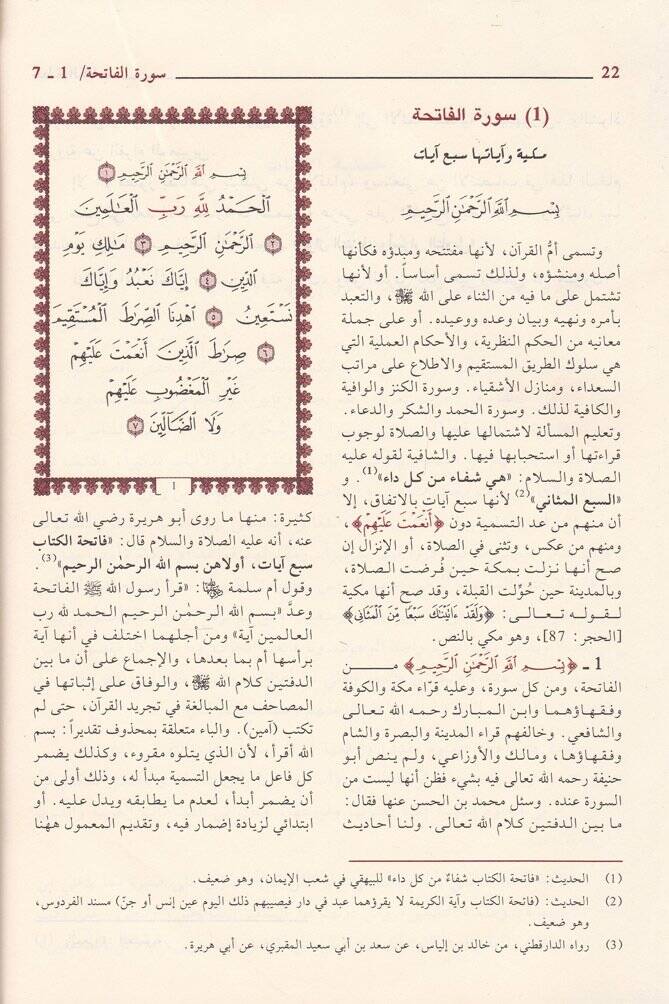 22
سورة الفاتحة/ 1 ـ 7
(1) سورة الفاتحة
مكية وآياتها سبع آيات
بِسْمِ اللَّهِ الرَّحْمَٰنِ الرَّحِيمِ
وتسمى أمُّ القرآن، لأنها مفتتحه ومبدؤه فكأنها
أصله ومنشؤه، ولذلك تسمى أساساً. أو لأنها
تشتمل على ما فيه من الثناء على الله ﷻ، والتعبد
بأمره ونهيه وبيان وعده ووعيده. أو على جملة
معانيه من الحكم النظرية، والأحكام العملية التي
هي سلوك الطريق المستقيم والاطلاع على مراتب
السعداء، ومنازل الأشقياء. وسورة الكنز والوافية
والكافية لذلك. وسورة الحمد والشكر والدعاء.
وتعليم المسألة لاشتمالها عليها والصلاة لوجوب
قراءتها أو استحبابها فيها. والشافية لقوله عليه
الصلاة والسلام: «هي شفاء من كل داء»(1). و
«السبع المثاني»(2) لأنها سبع آيات بالاتفاق، إلا
أن منهم من عد التسمية دون ﴿أَنْعَمْتَ عَلَيْهِمْ﴾،
ومنهم من عكس، وتثنى في الصلاة، أو الإنزال إن
صح أنها نزلت بمكة حين فُرضت الصلاة،
وبالمدينة حين حُوِّلت القبلة، وقد صح أنها مكية
لقوله تعالى: ﴿وَلَقَدْ ءَاتَيْنَٰكَ سَبْعًا مِّنَ ٱلْمَثَانِي﴾
[الحجر: 87]، وهو مكي بالنص.
1 ـ ﴿بِسْمِ ٱللَّهِ ٱلرَّحْمَٰنِ ٱلرَّحِيمِ﴾ من
الفاتحة، ومن كل سورة، وعليه قرّاء مكة والكوفة
وفقهاؤهما وابن المبارك رحمه الله تعالى
والشافعي. وخالفهم قراء المدينة والبصرة والشام
وفقهاؤها، ومالك والأوزاعي، ولم ينص أبو
حنيفة رحمه الله تعالى فيه بشيء فظن أنها ليست من
السورة عنده. وسئل محمد بن الحسن عنها فقال:
ما بين الدفتين كلام الله تعالى. ولنا أحاديث
بِسْمِ ٱللَّهِ ٱلرَّحْمَٰنِ ٱلرَّحِيمِ ١
ٱلْحَمْدُ لِلَّهِ رَبِّ ٱلْعَٰلَمِينَ
٢ ٱلرَّحْمَٰنِ ٱلرَّحِيمِ ٣ مَٰلِكِ يَوْمِ
ٱلدِّينِ ٤ إِيَّاكَ نَعْبُدُ وَإِيَّاكَ
نَسْتَعِينُ ٥ ٱهْدِنَا ٱلصِّرَٰطَ ٱلْمُسْتَقِيمَ
٦ صِرَٰطَ ٱلَّذِينَ أَنْعَمْتَ عَلَيْهِمْ
غَيْرِ ٱلْمَغْضُوبِ عَلَيْهِمْ
وَلَا ٱلضَّآلِّينَ ٧
١
كثيرة: منها ما روى أبو هريرة رضي الله تعالى
عنه، أنه عليه الصلاة والسلام قال: «فاتحة الكتاب
سبع آيات، أولاهن بسم الله الرحمٰن الرحيم»(3).
وقول أم سلمة: «قرأ رسول الله ﷺ الفاتحة
وعدَّ «بسم الله الرحمٰن الرحيم الحمد لله رب
العالمين آية» ومن أجلهما اختلف في أنها آية
برأسها أم بما بعدها، والإجماع على أن ما بين
الدفتين كلام الله ﷻ، والوفاق على إثباتها في
المصاحف مع المبالغة في تجريد القرآن، حتى لم
تكتب (آمين). والباء متعلقة بمحذوف تقديراً: بسم
الله أقرأ، لأن الذي يتلوه مقروء، وكذلك يضمر
كل فاعل ما يجعل التسمية مبدأ له، وذلك أولى من
أن يضمر أبدأ، لعدم ما يطابقه ويدل عليه. أو
ابتدائي لزيادة إضمار فيه، وتقديم المعمول هٰهنا
(1) الحديث: «فاتحة الكتاب شفاءٌ من كل داء» للبيهقي في شعب الإيمان، وهو ضعيف.
(2) الحديث: (فاتحة الكتاب وآية الكريمة لا يقرؤهما عبد في دار فيصيبهم ذلك اليوم عين إنس أو جنّ) مسند الفردوس،
وهو ضعيف.
(3) رواه الدارقطني، من خالد بن إلياس، عن سعد بن أبي سعيد المقبري، عن أبي هريرة.